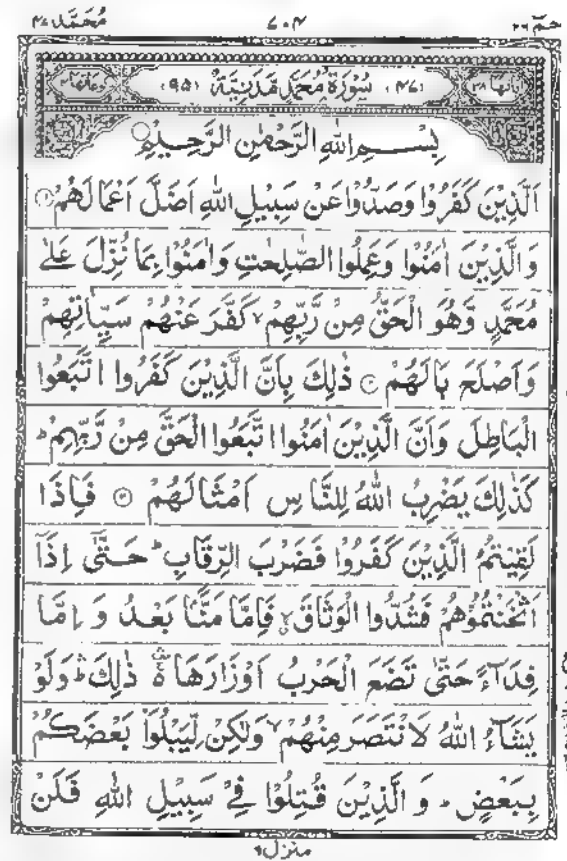 حٰمٓ ۲۶ ۷۰۴ مُحَمَّد ۴۷
اٰیَاتُهَا ۳۸ (۴۷) سُوْرَةُ مُحَمَّدٍ مَّدَنِيَّةٌ (۹۵) رُكُوْعَاتُهَا ۴
بِسْمِ اللّٰهِ الرَّحْمٰنِ الرَّحِيْمِ
اَلَّذِيْنَ كَفَرُوْا وَصَدُّوْا عَنْ سَبِيْلِ اللّٰهِ اَضَلَّ اَعْمَالَهُمْ ۝۱
وَالَّذِيْنَ اٰمَنُوْا وَعَمِلُوا الصّٰلِحٰتِ وَاٰمَنُوْا بِمَا نُزِّلَ عَلٰى
مُحَمَّدٍ وَّهُوَ الْحَقُّ مِنْ رَّبِّهِمْ ۙ كَفَّرَ عَنْهُمْ سَيِّاٰتِهِمْ
وَاَصْلَحَ بَالَهُمْ ۝۲ ذٰلِكَ بِاَنَّ الَّذِيْنَ كَفَرُوا اتَّبَعُوا
الْبَاطِلَ وَاَنَّ الَّذِيْنَ اٰمَنُوا اتَّبَعُوا الْحَقَّ مِنْ رَّبِّهِمْ ؕ
كَذٰلِكَ يَضْرِبُ اللّٰهُ لِلنَّاسِ اَمْثَالَهُمْ ۝۳ فَاِذَا
لَقِيْتُمُ الَّذِيْنَ كَفَرُوْا فَضَرْبَ الرِّقَابِ ؕ حَتّٰٓى اِذَاۤ
اَثْخَنْتُمُوْهُمْ فَشُدُّوا الْوَثَاقَ ۙ فَاِمَّا مَنًّۢا بَعْدُ وَاِمَّا
فِدَآءً حَتّٰى تَضَعَ الْحَرْبُ اَوْزَارَهَا ۛ۬ ذٰلِكَ ۛؕ وَلَوْ
يَشَآءُ اللّٰهُ لَانْتَصَرَ مِنْهُمْ ۙ وَلٰكِنْ لِّيَبْلُوَا۟ بَعْضَكُمْ
بِبَعْضٍ ؕ وَالَّذِيْنَ قُتِلُوْا فِيْ سَبِيْلِ اللّٰهِ فَلَنْ
منزل ۶